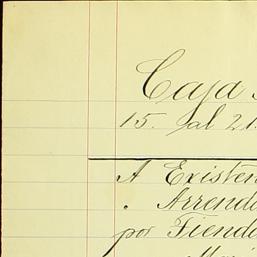 Caja
15. al 21
A Existen
" Arrenda
por Tienda